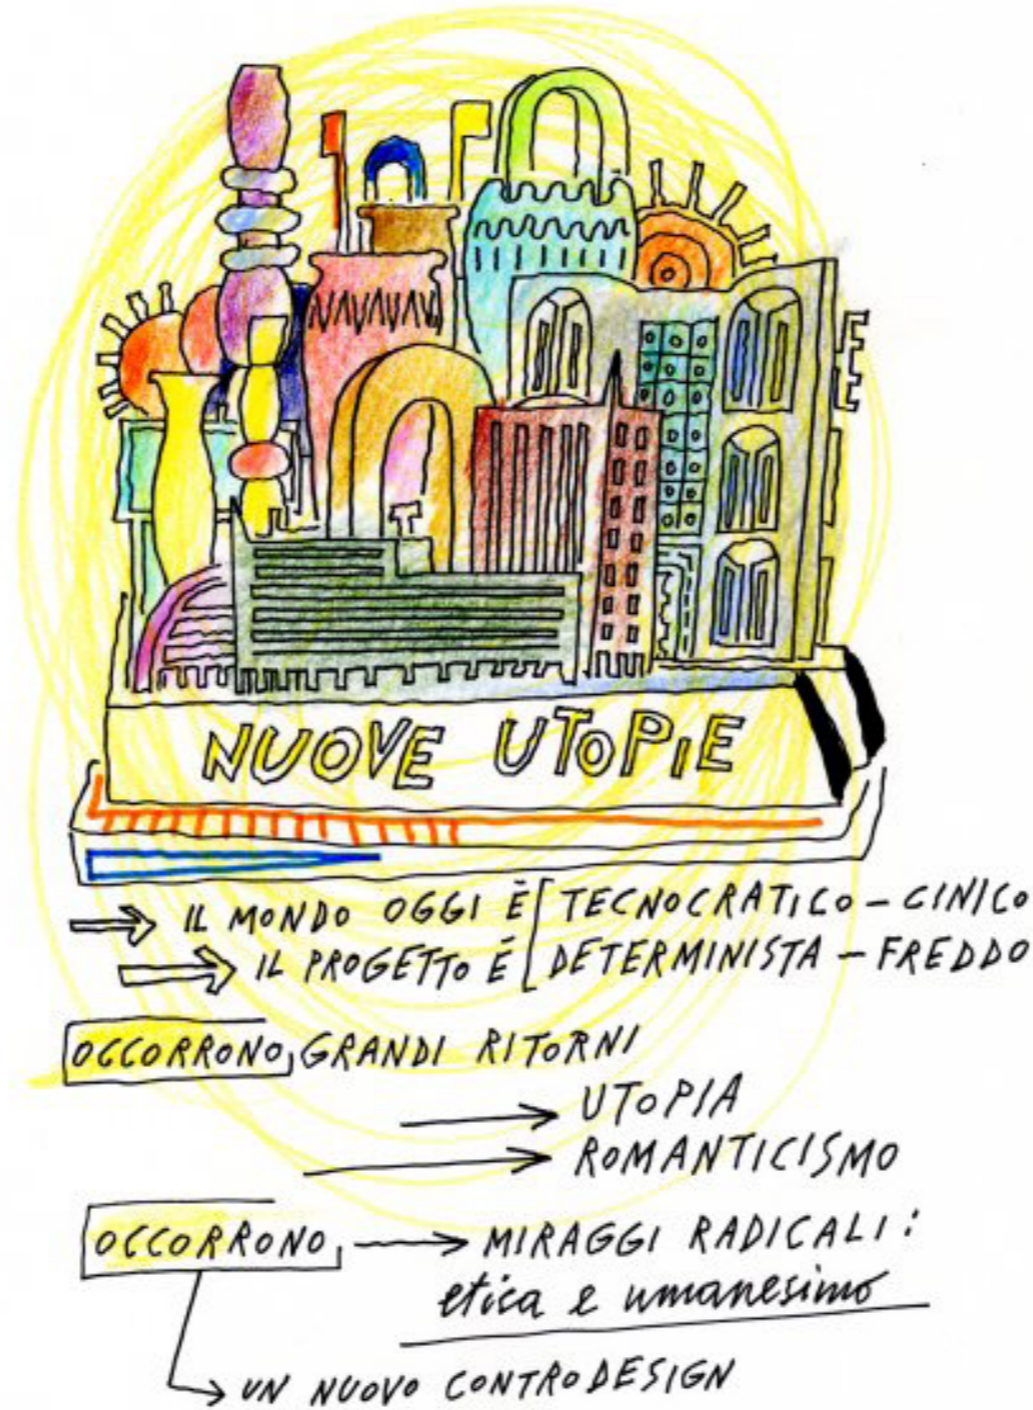 NUOVE UTOPIE
IL MONDO OGGI È TECNOCRATICO – CINICO
IL PROGETTO È DETERMINISTA – FREDDO
OCCORRONO GRANDI RITORNI
UTOPIA
ROMANTICISMO
OCCORRONO MIRAGGI RADICALI:
etica e umanesimo
UN NUOVO CONTRODESIGN